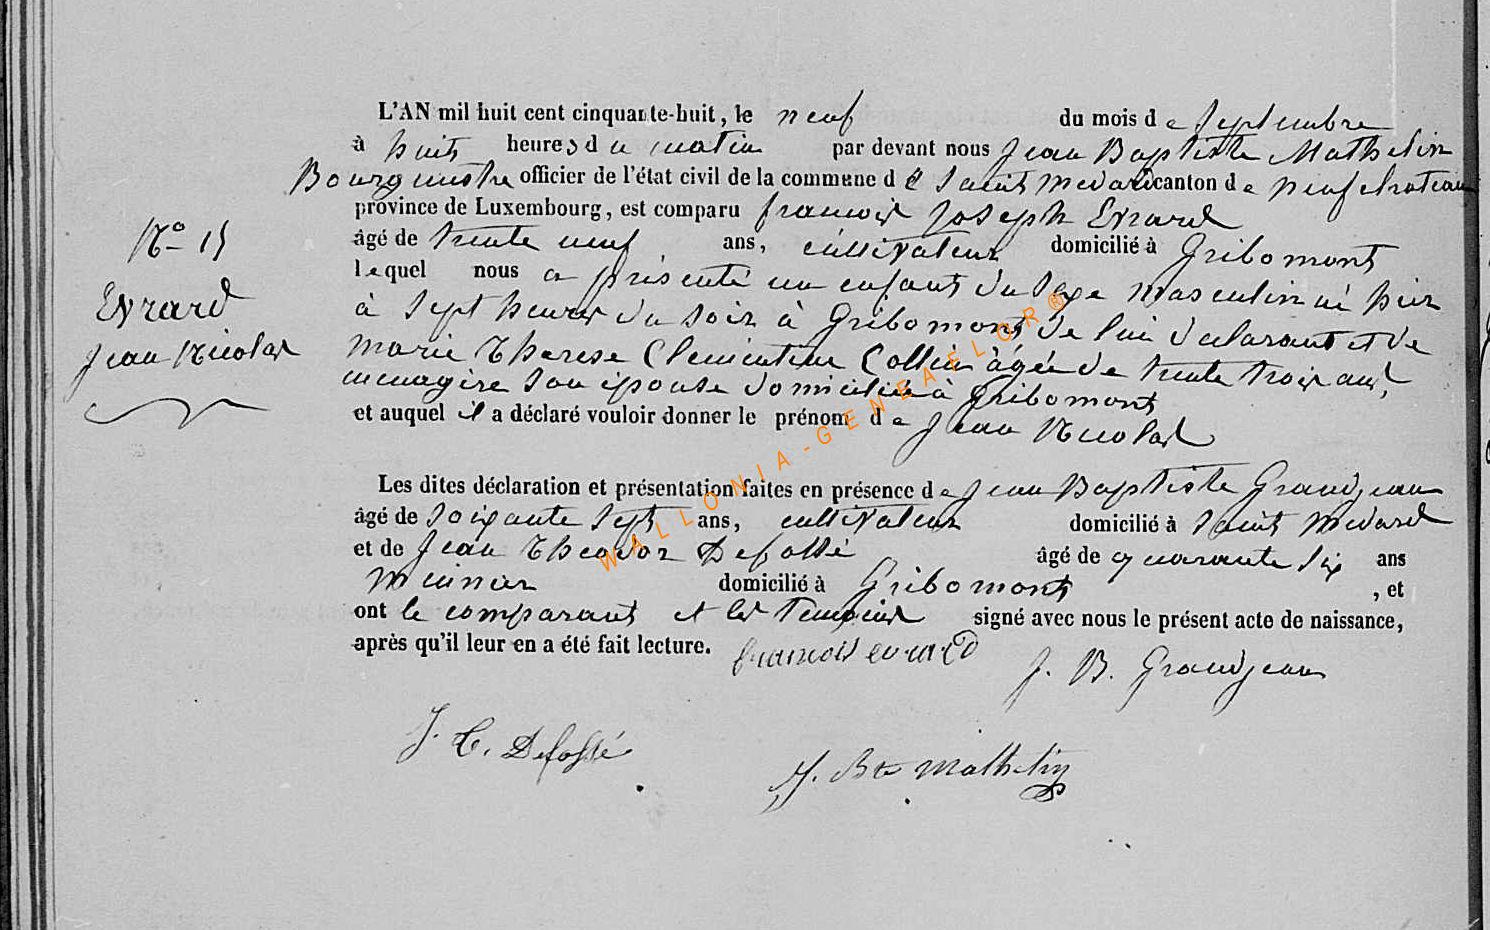 L'AN mil huit cent cinquante-huit, le neuf du mois de Septembre
à huit heures du matin par devant nous Jean Baptiste Mathelin
Bourgmestre officier de l'état civil de la commune de Saint Medard canton de Neufchateau
province de Luxembourg, est comparu francois Joseph Evrard
âgé de trente neuf ans, cultivateur domicilié à Gribomont
lequel nous a présenté un enfant du Sexe masculin né hier
à Sept heures du soir à Gribomont de lui déclarant et de
Marie Therese Clementine Collin âgée de trente trois ans,
menagère son épouse domiciliée à Gribomont
et auquel il a déclaré vouloir donner le prénom de Jean Nicolas
N° 15
Evrard
Jean Nicolas
Les dites déclaration et présentation faites en présence de Jean Baptiste Grandjean
âgé de Soixante Sept ans, cultivateur domicilié à Saint Medard
et de Jean Theodor Defossé âgé de quarante Six ans
domicilié à Gribomont, et
ont le comparant et les temoins signé avec nous le présent acte de naissance,
après qu'il leur en a été fait lecture.
francois evrard
J. B. Grandjean
J. T. Defossé
J. Bte Mathelin
WALLONIA-GENEAELOR®